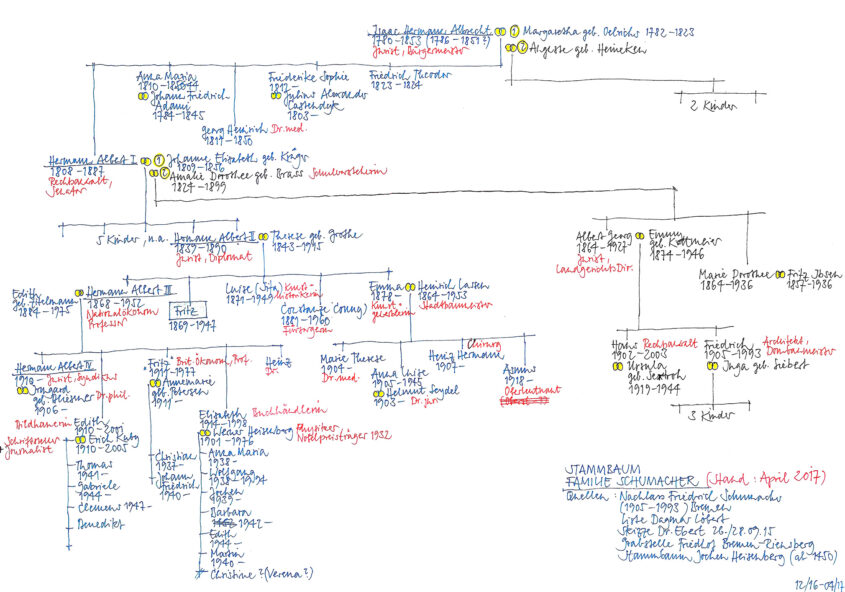 Isaac Hermann Albrecht
1780-1853 (1786-1851?)
Jurist, Bürgermeister
1 Margaretha geb. Oelrichs 1782-1823
2 Auguste geb. Heineken
2 Kinder
Anna Maria
Johann Friedrich
Adami
1784-1845
Georg Heinrich Dr. med.
1811-1850
Friderike Sophie
1812-
Julius Alexander
Castendyk
1803-
Friedrich Theodor
1823-1824
Hermann Albert I
1808-1887
Rechtsanwalt,
Senator
1 Johanne Elisabeth geb. Krüger
1809-1856
2 Amalie Dorothee geb. Brass Schulvorsteherin
1824-1899
5 Kinder, u.a. Hermann Albert II
1839-1890
Jurist, Diplomat
Therese geb. Grothe
1843-1915
Albert Georg
1864-1927
Jurist,
Landgerichts Dir.
Emmy
geb. Kottmeier
1874-1946
Marie Dorothee
1864-1936
Fritz Ibsen
1857-1936
Edith
geb. Zitelmann
1884-1975
Hermann Albert III
1868-1952
Nationalökonom
Professor
Fritz
1869-1947
Luise (Sita)
1871-1949
Constanze (Conny)
1881-1960
Fürsorgerin
Emma
1878-
Kunst-
Heinrich Lassen
1864-1953
Stadtbaumeister
Hans Rechtsanwalt
1902-2003
Ursula
1919-1944
Friedrich
1905-1993
Architekt,
Dombaumeister
Inga geb. Siebert
3 Kinder
Hermann Albert IV
1910- Jurist, Syndikus
Irmgard
Dr. phil.
1906-
Bildhauerin Edith
1910-2001
Schriftsteller
Journalist
Erich Kuby
1910-2005
Thomas
1941-
Gabriele
1944-
Clemens 1947-
Benedikt
Fritz Brit. Ökonom, Prof.
1911-1977
Annemarie
geb. Petersen
1911-
Christian
1937-
Johann
Friedrich
1940-
Elisabeth Buchhändlerin
1914-1998
Werner Heisenberg
1901-1976
Physiker
Nobelpreisträger 1932
Anna Maria
1938-
Wolfgang
1938-1994
Jochen
1939-
Barbara
1942-
Edith
1944-
Martin
1940-
Christine? (Verena?)
Heinz
Dr.
Marie Therese
1904-
Dr. med.
Anna Luise
1905-1945
Helmut Seydel
1903- Dr. jur.
Chirurg
Heinz Hermann
1907-
Asmus
1918-
Oberleutnant
STAMMBAUM
FAMILIE SCHUMACHER (Stand: April 2017)
Quellen: Nachlass Friedrich Schumacher
(1905-1993) Bremen
Liste Dagmar Löbert
Skizze Dr. Ebert 26./28.09.15
Grabstelle Friedhof Bremen-Riensberg
Stammbaum Jochen Heisenberg (ab 1450)
12/16-04/17